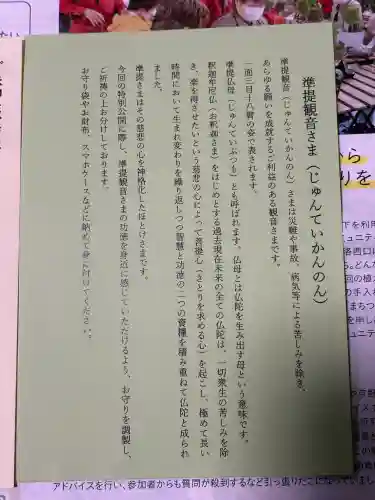 準提観音さま（じゅんていかんのん）
準提観音（じゅんていかんのん）さまは災難や事故、病気等による苦しみを除き、
あらゆる願いを成就するご利益のある観音さまです。
一面三目十八臂の姿で表されます。
準提仏母（じゅんていぶつも）とも呼ばれます。仏母とは仏陀を生み出す母という意味です。
釈迦牟尼仏（お釈迦さま）をはじめとする過去現在未来の全ての仏陀は、一切衆生の苦しみを除
き、楽を得させたいという慈悲の心によって菩提心（さとりを求める心）を起こし、極めて長い
時間において生まれ変わりを繰り返しつつ智慧と功徳の二つの資糧を積み重ねて仏陀と成られ
ました。
準提さまはその慈悲の心を神格化したほとけさまです。
今回の特別公開に際し、準提観音さまの功徳を身近に感じていただけるよう、お守りを謹製し、
ご祈祷の上お分けしております。
お守り袋やお財布、スマホケースなどに納めて身に付けてください。
アドバイスを行い、参加者からも質問が殺到するなど引っ張りだこになっていまし